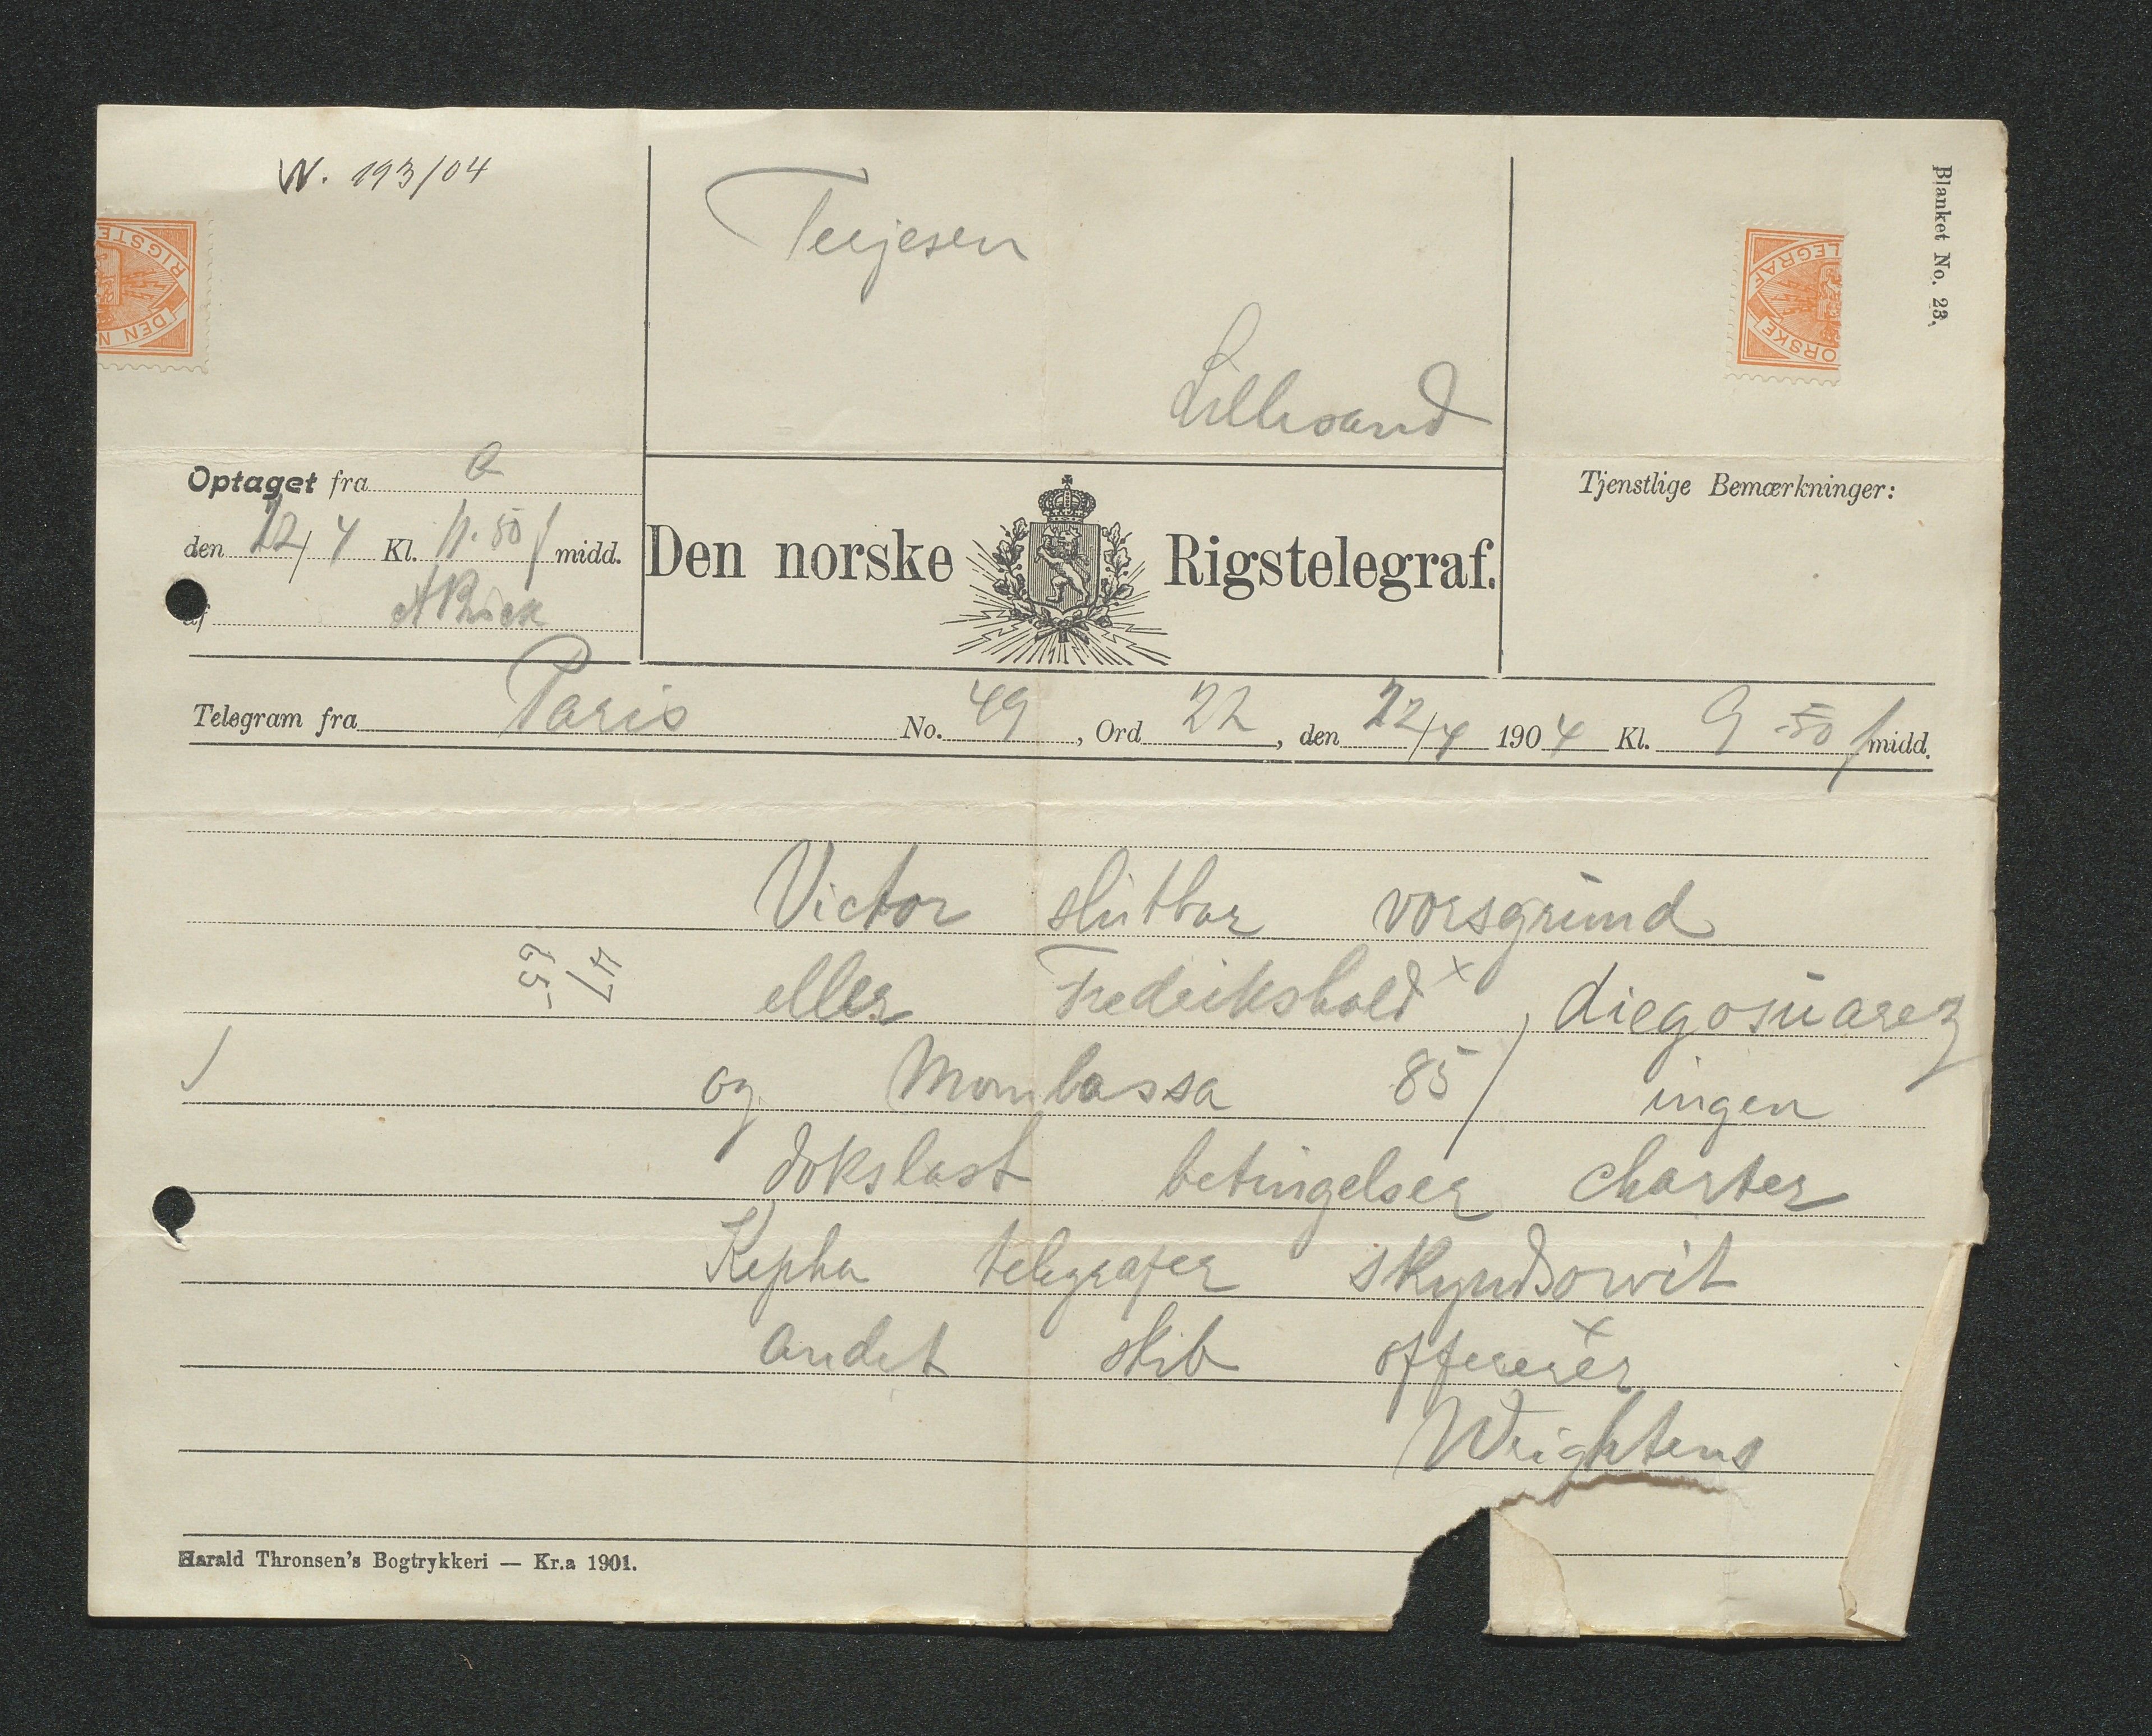 N. 193/04
Terjesen
Lillesand
Blanket No. 23.
RIGSTE
DEN N
LEGRAF
ORSKE
Optaget fra a
den 22/4 Kl. 11.50 f midd.
af
Den norske Rigstelegraf.
Tjenstlige Bemærkninger:
Telegram fra Paris No. 49, Ord 22, den 22/4 1904 Kl. 9 50 f midd.
Victor slutbar vorsgrund
eller Fredrikshald x, diegosuarez
og Mombassa 85/ ingen
dokslast betingelser charter
Kepha telegrafer skyndsowit
andet skib offerer x
Wrightens
47
65
Harald Thronsen's Bogtrykkeri — Kr.a 1901.